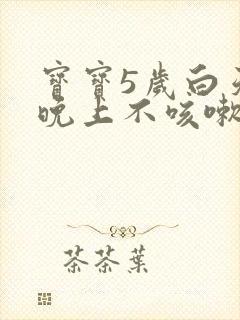 寶寶5歲白天
晚上不咳嗽
茶茶葉